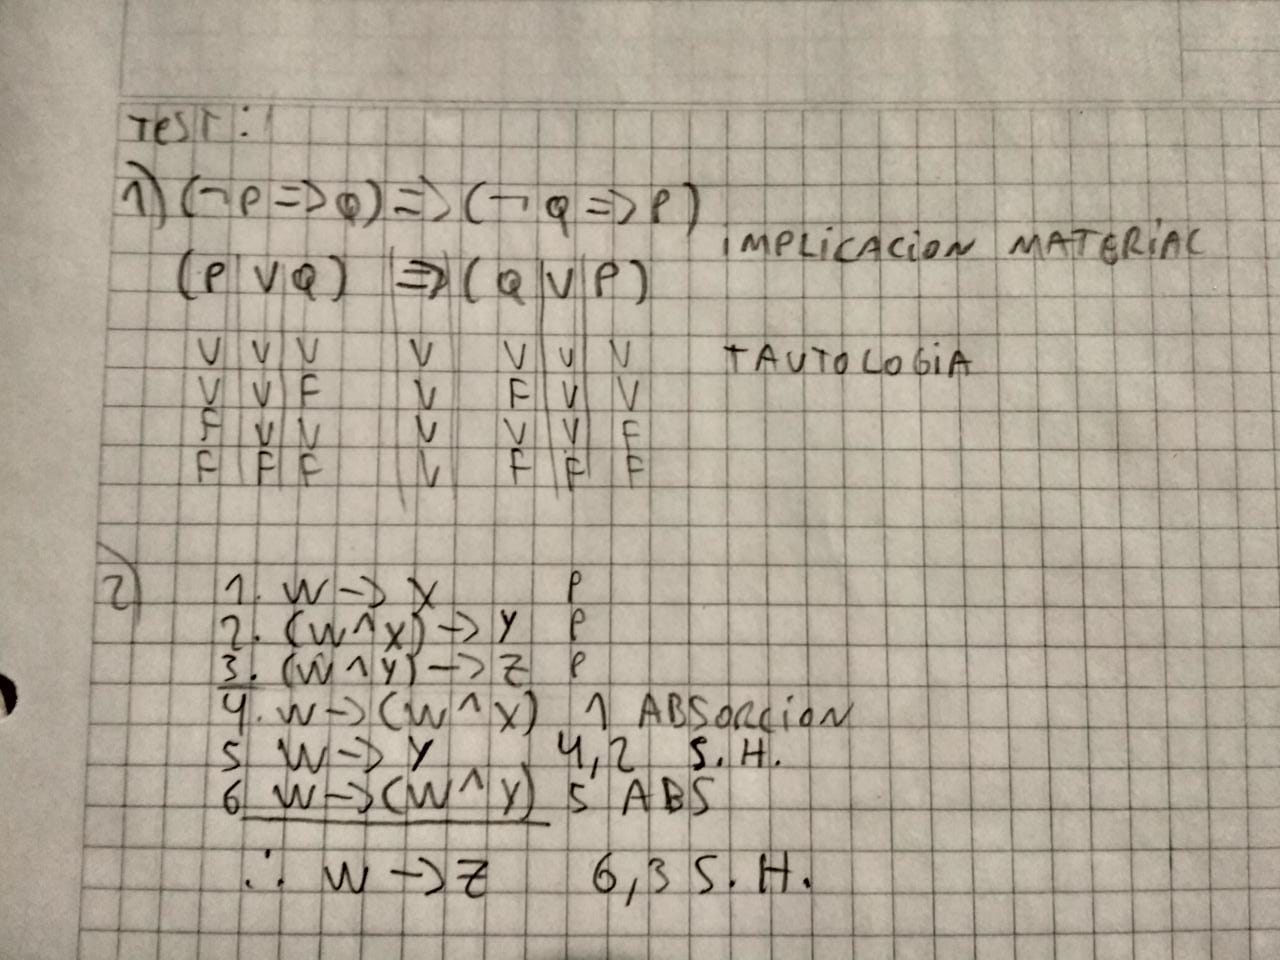 TEST:
1) (¬P => Q) => (¬Q => P)
IMPLICACION MATERIAL
(P V Q) => (Q V P)
V V V V V V V TAUTOLOGIA
V V F V F V V
F V V V V V F
F F F V F F F
2) 1. W -> X P
2. (W ^ X) -> Y P
3. (W ^ Y) -> Z P
4. W -> (W ^ X) 1 ABSORCION
5 W -> Y 4,2 S.H.
6 W -> (W ^ Y) 5 ABS
∴ W -> Z 6,3 S.H.